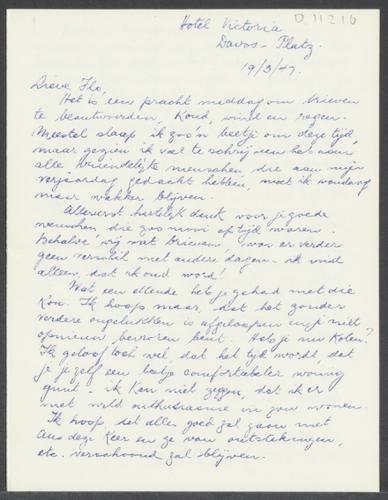 D 11210
Hotel Victoria
Davos-Platz.
19/3/47.
Lieve Flo,
Het is een pracht middag om brieven
te beantwoorden. Koud, wind en regen.
Meestal slaap ik zoo'n beetje om deze tijd,
maar gezien ik val te schrijven heb aan
alle vriendelijke menschen, die aan mijn
verjaardag gedacht hebben, moet ik vandaag
maar wakker blijven.
Allereerst hartelijk dank voor je goede
wenschen, die zoo mooi op tijd waren.
Behalve vrij wat brieven, was er verder
geen verschil met andere dagen - ik vind
alleen, dat ik oud word!
Wat een ellende heb je gehad met die
Kou. Ik hoop maar, dat het zonder
verdere ongelukken is afgeloopen en je niet
opnieuw bevroren bent. Heb je nu Kolen?
Ik geloof toch wel, dat het tijd wordt, dat
je jezelf een beetje comfortabeler woning
gunt - ik kan niet zeggen, dat ik er
met wild enthusiasme in zou wonen.
Ik hoop, dat alles goed zal gaan met
Aus deze keer en ze van ontstekingen,
etc. verschoond zal blijven.